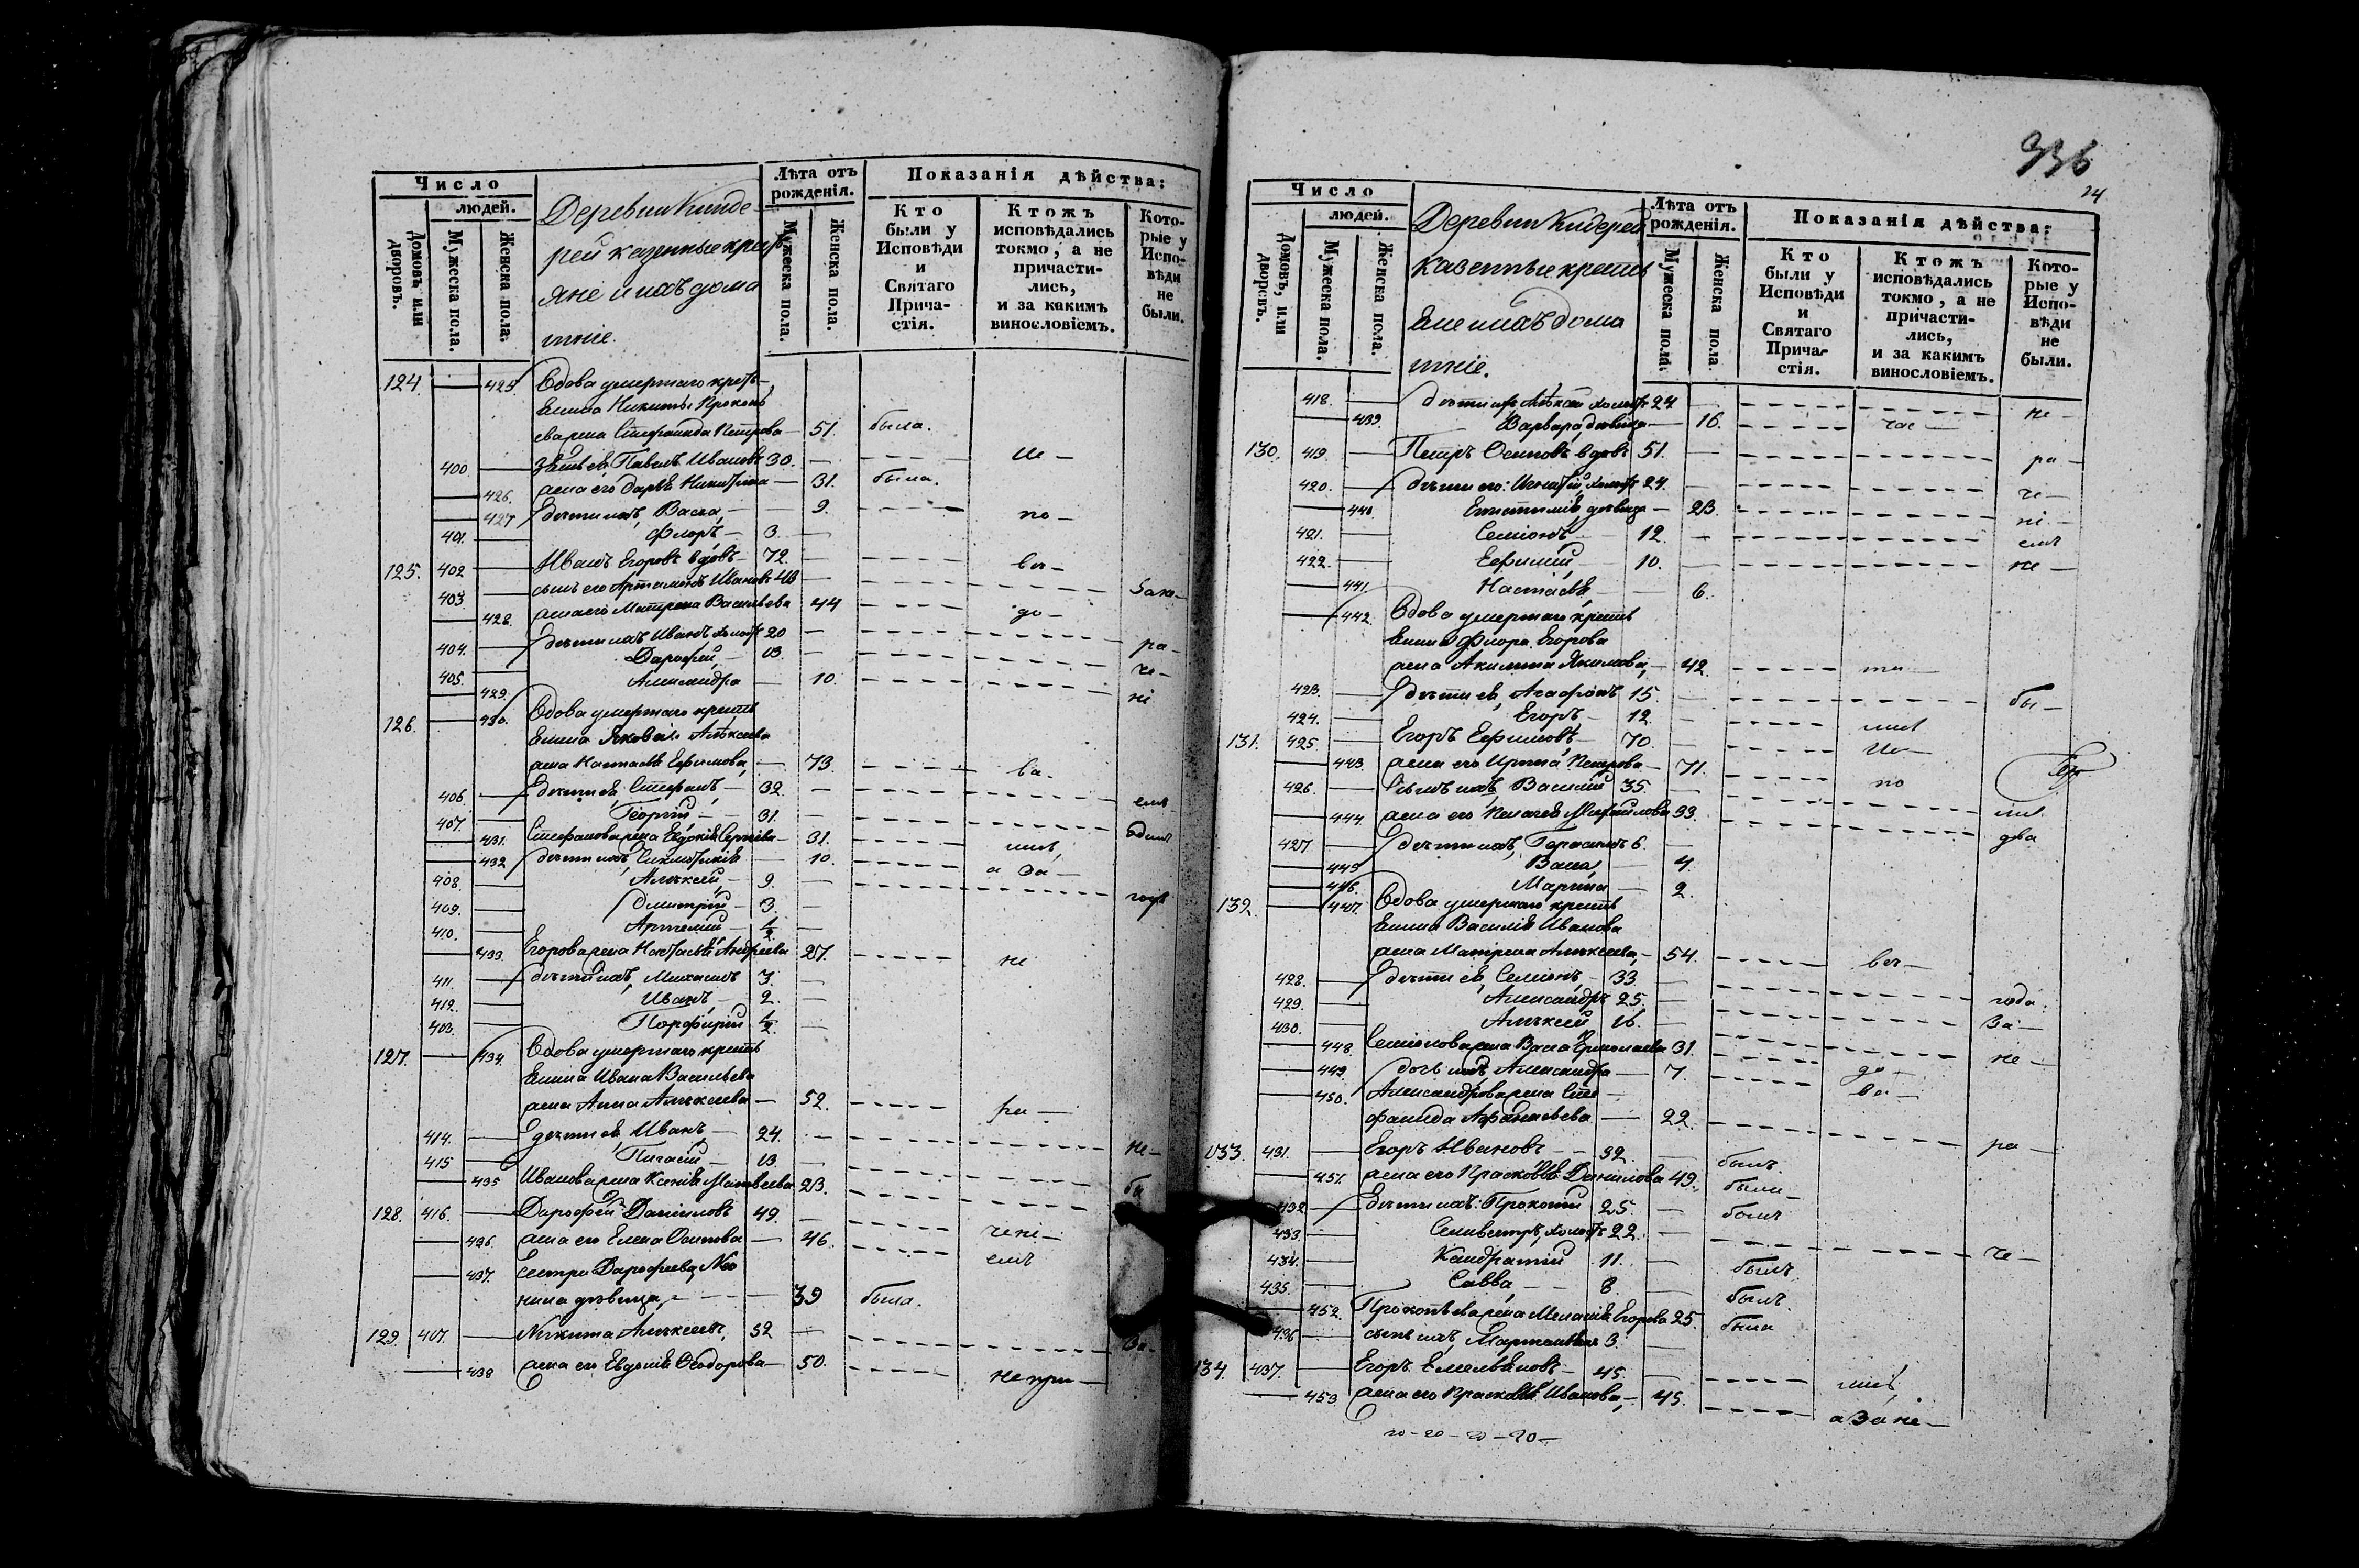 Число
людей.
Домовъ или дворовъ.
Мужеска пола.
Женска пола.
Деревни Кинде-
рей казенные крестъ
яне и ихъ дома
шніе.
Лѣта отъ рожденія.
Мужеска пола.
Женска пола.
Показанія дѣйства:
Кто были у Исповѣди и Святаго Прича-стія.
Ктожъ исповѣдались токмо, а не причасти-лись, и за какимъ винословіемъ.
Кото-рые у Испо-вѣди не были.
124. 425 Вдова умершаго кресть-
янина Никиты Прокопь
ева жена Стефанида Петрова 51. была.
400 зять ея Павелъ Ивановъ 30. не
426. жена его Дарья Никитина 31. была.
427 дѣти ихъ, Васса, 9. по
401. Флоръ 3.
125. 402 Иванъ Егоровъ вдовъ 72. вы
403. сынъ его Артамонъ Ивановъ 48
428. жена его Матрена Васильева 44 до
404. дѣти ихъ Иванъ холостъ 20 ра
405. Дарофей, 13. че
429. Александра 10. ні
126. 430. Вдова умершаго кресть
янина Якова Алѣксеева
жена Настасья Ефимова, 73. ва.
406. дѣти ея, Стефанъ, 32. емъ
407. Георгій 31. одинъ
431. Стефанова жена Евдокія Сергѣева 31.
432 дѣти ихъ, 10. а за
408. Алѣксей, 9. годъ
409. Дмитрій 3.
410. Артемій ½
433. Егорова жена Настасья Андреева 27. не
411. дѣти ихъ, Михаилъ 3.
412. Иванъ 2.
413. Порфирій ½
127. 434. Вдова умершаго кресть
янина Ивана Васильева
жена Анна Алѣксеева 52. ра
414. дѣти ея, Иванъ 24. не
415 13.
435 Иванова жена Ксенія Матвѣева 23. бы
128. 416. Дарофей Даниловъ 49.
436. жена его Елена Осипова 46. чені
437. Сестра Дарофеева, Нео
нила дѣвица, 39 была. емъ
129. 417. Никита Алѣксеевъ, 52 за
438 жена его Евдокія Ѳеодорова 50. не при
336
24
Число
людей.
Домовъ, или дворовъ.
Мужеска пола.
Женска пола.
Деревни Киндерей
казенные кресть
яне и ихъ дома
шніе.
Лѣта отъ рожденія.
Мужеска пола.
Женска пола.
Показанія дѣйства:
Кто были у Исповѣди и Святаго Прича-стія.
Ктожъ исповѣдались токмо, а не причасти-лись, и за какимъ винословіемъ.
Кото-рые у Испо-вѣди не были.
418. дѣти ихъ Алѣксѣй холостъ 24 не
439. Варвара, дѣвица 16. час
130. 419. Петръ Осиповъ вдовъ 51. ра
420. дѣти его: Игнатій, холостъ 24. че
440 дѣвица 23. ні
421. Семіонъ 12. емъ
422. Ефимій, 10. не
441. Настасья 6.
442. Вдова умершаго кресть
янина Флора Егорова
жена Акилина Якимова, 42. ти
423. дѣти ея, Агафонъ 15. бы
424. Егоръ 12.
131. 425. Егоръ Ефимовъ 70. ис
443. жена его Ирина Петрова 71. по
426. Сынъ ихъ Василій 35.
444. жена его Пелагея Михайлова 33. два
427. дѣти ихъ, Герасимъ 6.
445 Васса, 4.
446. Марина 2.
132. 447. Вдова умершаго кресть
янина Василія Иванова
жена Матрена Алѣксеева, 54. вы
428. дѣти ея, Семіонъ, 33. года.
429. Александръ 25. за
430. Алѣксей 16. не
448. Семіонова жена Васса Ермолаева 31. до
449. дочь ихъ Александра 7. ва
450. Александрова жена Сте
фанида Афанасьева 22. ра
133. 431. Егоръ Ивановъ 52. былъ.
451. жена его Прасковья Данилова 49. была
432 дѣти ихъ: Прокопій 25. былъ
433. Селивестръ, холостъ 22. че
434. Кандратій 11. былъ
435. Савва, 8. былъ.
452. Прокопьева жена Меланія Егорова 25. была
436 сынъ ихъ, 3.
134. 437. Егоръ Емельяновъ 45.
453 жена его Прасковья Иванова, 45. а за не